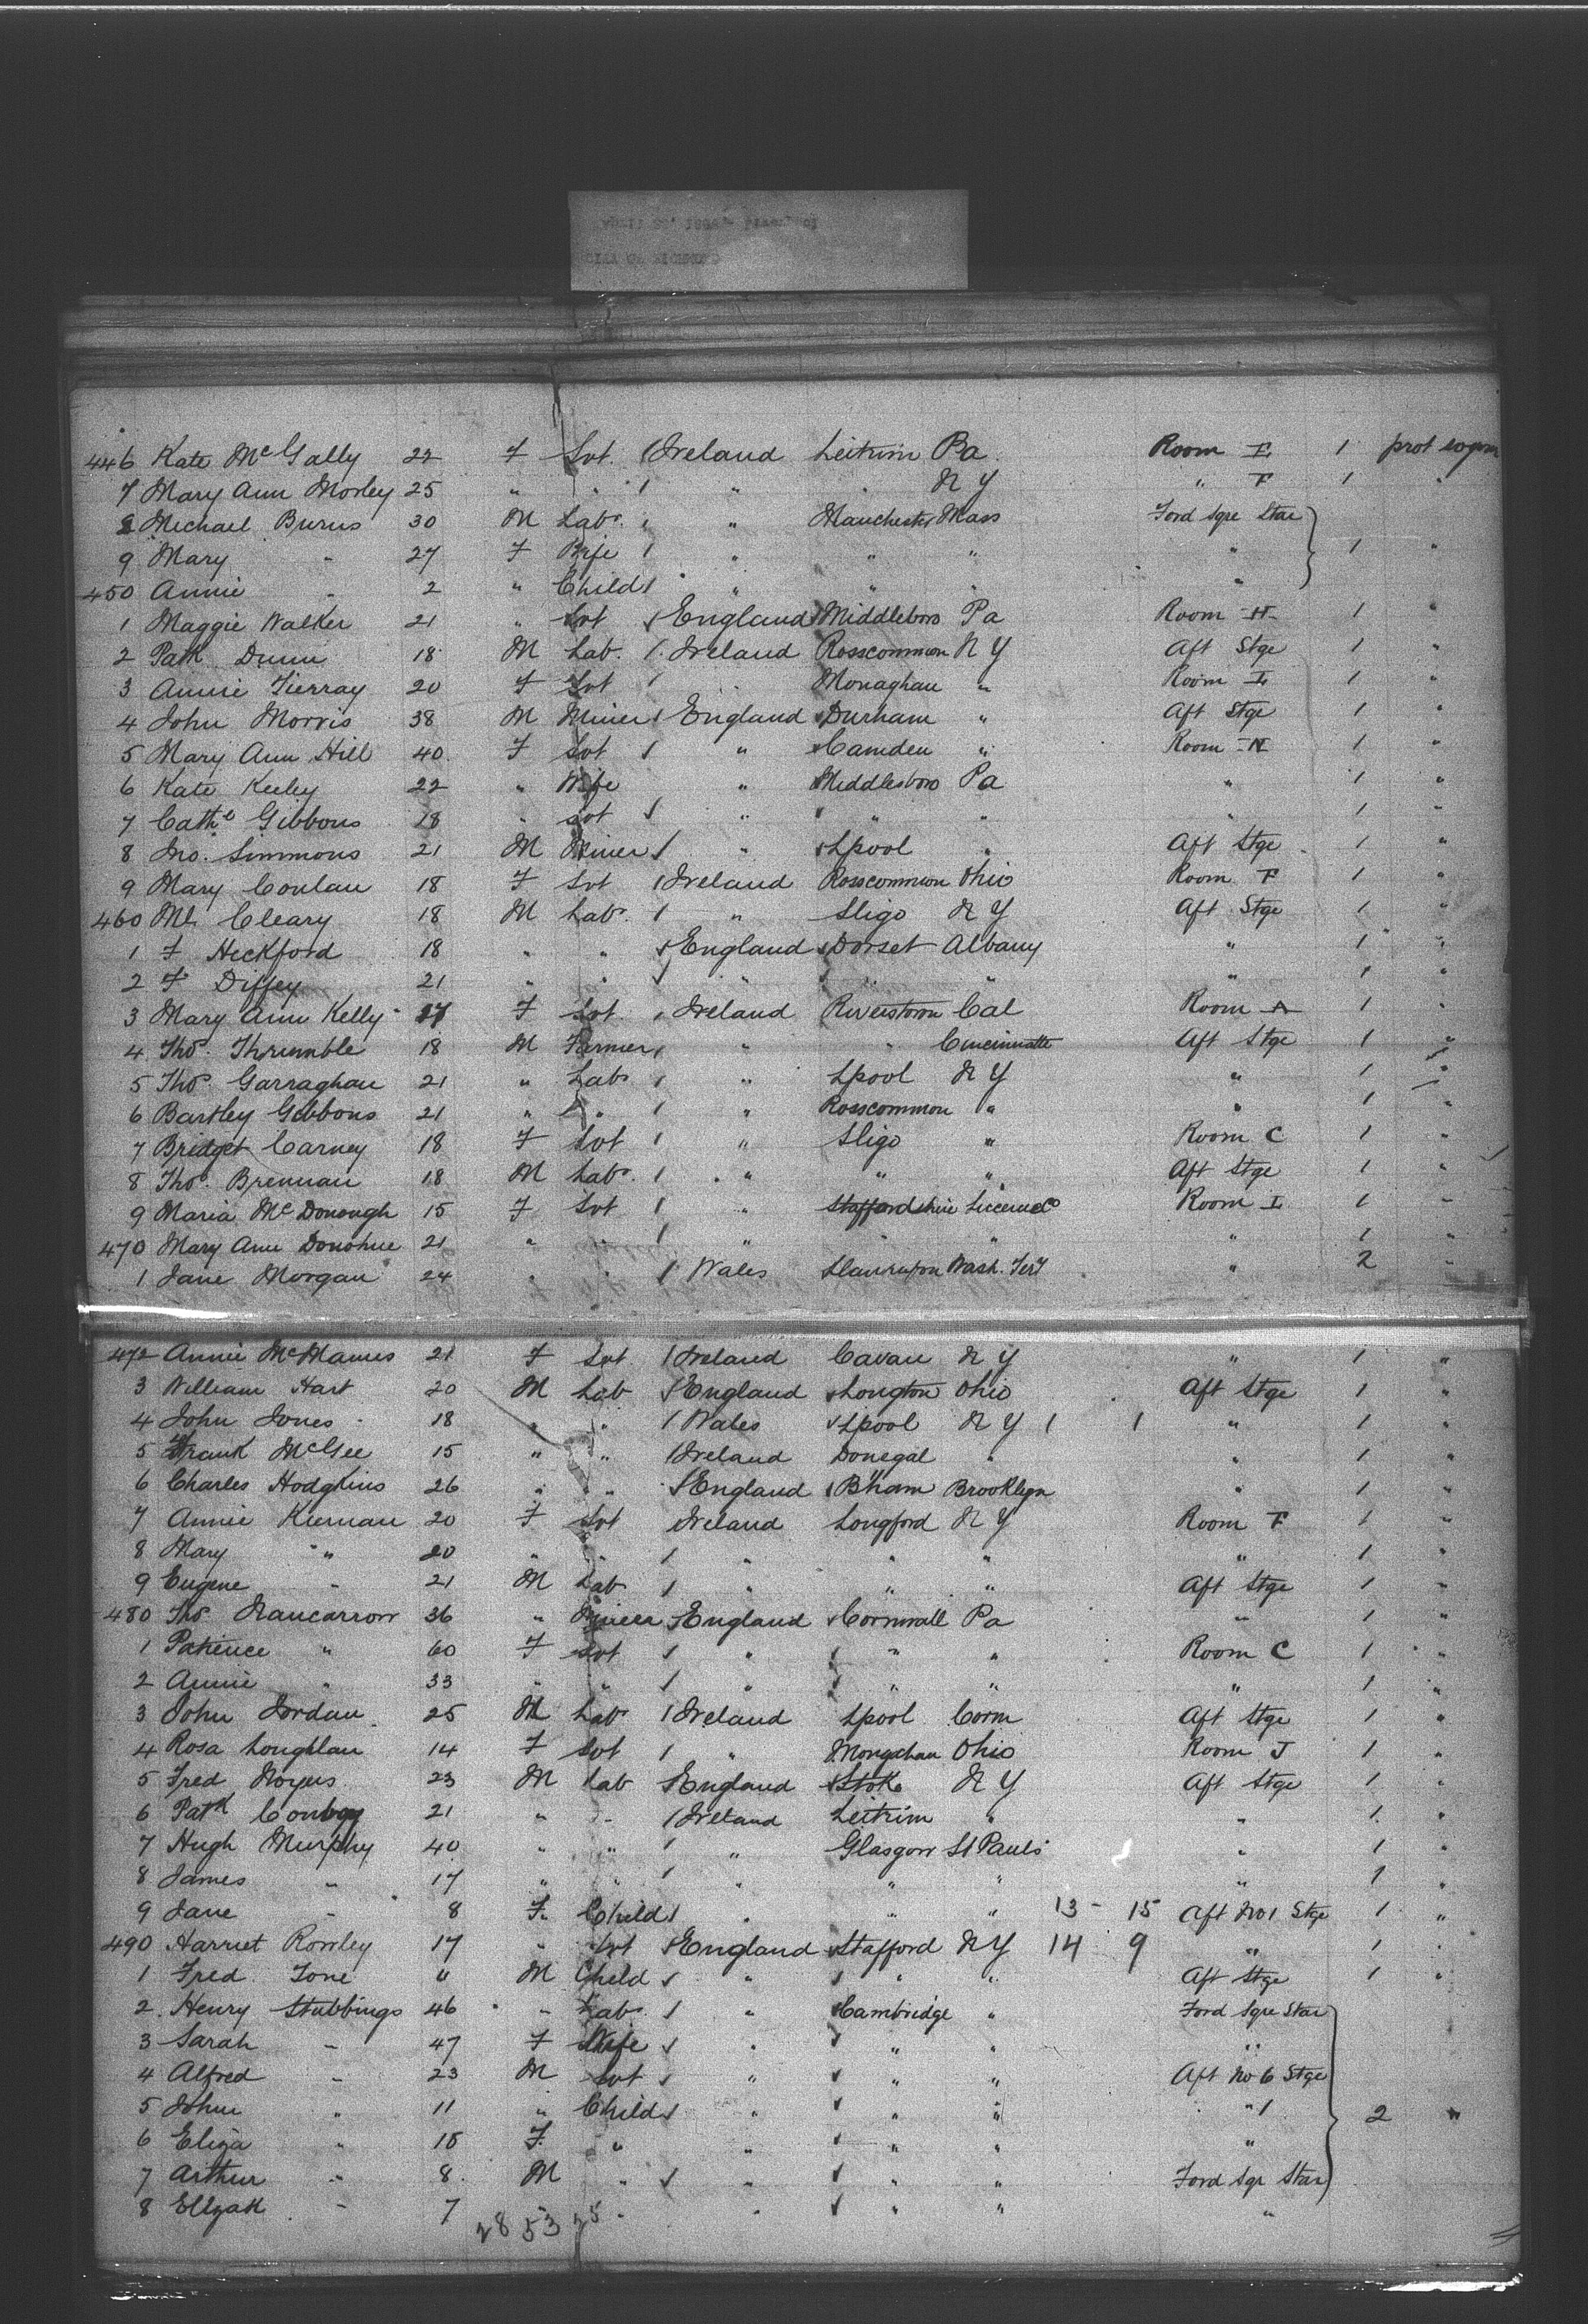 446 Kate McGally 22 F Svt. Ireland Leitrim Pa. Room E 1 prot sojourn
7 Mary Ann Morley 25 " " 1 " " N Y " F 1 "
8 Michael Burns 30 M Labr. " " Manchester Mass Ford Sqre Star
9 Mary " 27 F Wife 1 " " " " 1 "
450 Annie " 2 " Child 1 " " " "
1 Maggie Walker 21 " Svt England Middlesboro Pa Room H 1 "
2 Patk Dunn 18 M Lab. 1 Ireland Rosscommon N Y Aft Stge 1 "
3 Annie Tierray 20 F Svt 1 " Monaghan " Room I 1 "
4 John Morris 38 M Miner England Durham " Aft Stge 1 "
5 Mary Ann Hill 40 F Svt 1 " Camden " Room H 1 "
6 Kate Keeley 22 " Wife " Middlesboro Pa " 1 "
7 Cathe Gibbons 18 " Svt 1 " " " " 1 "
8 Jno. Simmons 21 M Miner 1 " Lpool " Aft Stge 1 "
9 Mary Conlan 18 F Svt 1 Ireland Rosscommon Ohio Room F 1 "
460 Ml Cleary 18 M Labr. 1 " Sligo N Y Aft Stge 1 "
1 F Heckford 18 " " England Dorset Albany " 1 "
2 F Diffey 21 " " " " " " 1 "
3 Mary Ann Kelly 17 F Svt 1 Ireland Riverstown Cal Room A 1 "
4 Thos. Thrumble 18 M Farmer 1 " " Cincinnatte Aft Stge 1 "
5 Thos. Garraghan 21 " Labr 1 " Lpool N Y " 1 "
6 Bartley Gibbons 21 " " 1 " Rosscommon " " 1 "
7 Bridget Carney 18 F Svt 1 " Sligo " Room C 1 "
8 Thos. Brennan 18 M Labr. 1 " " " Aft Stge 1 "
9 Maria McDonough 15 F Svt 1 " Staffordshire Room I 1 "
470 Mary Ann Donohue 21 " " 1 " " " 1 "
1 Jane Morgan 24 " " 1 Wales Wash. Tery " 2 "
472 Annie McManus 21 F Svt 1 Ireland Cavan N Y " 1 "
3 William Hart 20 M Lab England Longton Ohio Aft Stge 1 "
4 John Jones 18 " " 1 Wales Lpool N Y 1 1 " 1 "
5 Frank McGee 15 " " 1 Ireland Donegal " " 1 "
6 Charles Hodgkins 26 " " England B'ham Brooklyn " 1 "
7 Annie Kiernan 20 F Svt Ireland Longford N Y Room F 1 "
8 Mary " 20 " " 1 " " " " 1 "
9 Eugene " 21 M Lab 1 " " " Aft Stge 1 "
480 Thos. Nancarrow 36 " Miner England Cornwall Pa " 1 "
1 Patience " 60 F Svt 1 " " " Room C 1 "
2 Annie " 33 " " 1 " " " " 1 "
3 John Jordan 25 M Labr 1 Ireland Lpool Conn Aft Stge 1 "
4 Rosa Loughlan 14 F Svt 1 " Mongahan Ohio Room J 1 "
5 Fred Noyes 23 M Lab England Stoke N Y Aft Stge 1 "
6 Patk Conboy 21 " " 1 Ireland Leitrim " " 1 "
7 Hugh Murphy 40 " " 1 " Glasgow St Pauls " 1 "
8 James " 17 " " 1 " " " " 1 "
9 Jane " 8 F Child 1 " " " 13 - 15 Aft No 1 Stge 1 "
490 Harriet Rowley 17 " Svt England Stafford N Y 14 9 " 1 "
1 Fred. Tone " M Child " " " Aft Stge 1 "
2 Henry Stubbings 46 " Labr. 1 " Cambridge " Ford Sqre Star
3 Sarah " 47 F Wife " " " "
4 Alfred " 23 M Svt " " " Aft No 6 Stge
5 John " 11 " Child " " " " 1 2 "
6 Eliza " 18 F. " " " " "
7 Arthur " 8 M " " " " Ford Sqr Star
8 " 7 " " " " " "
28 53 25